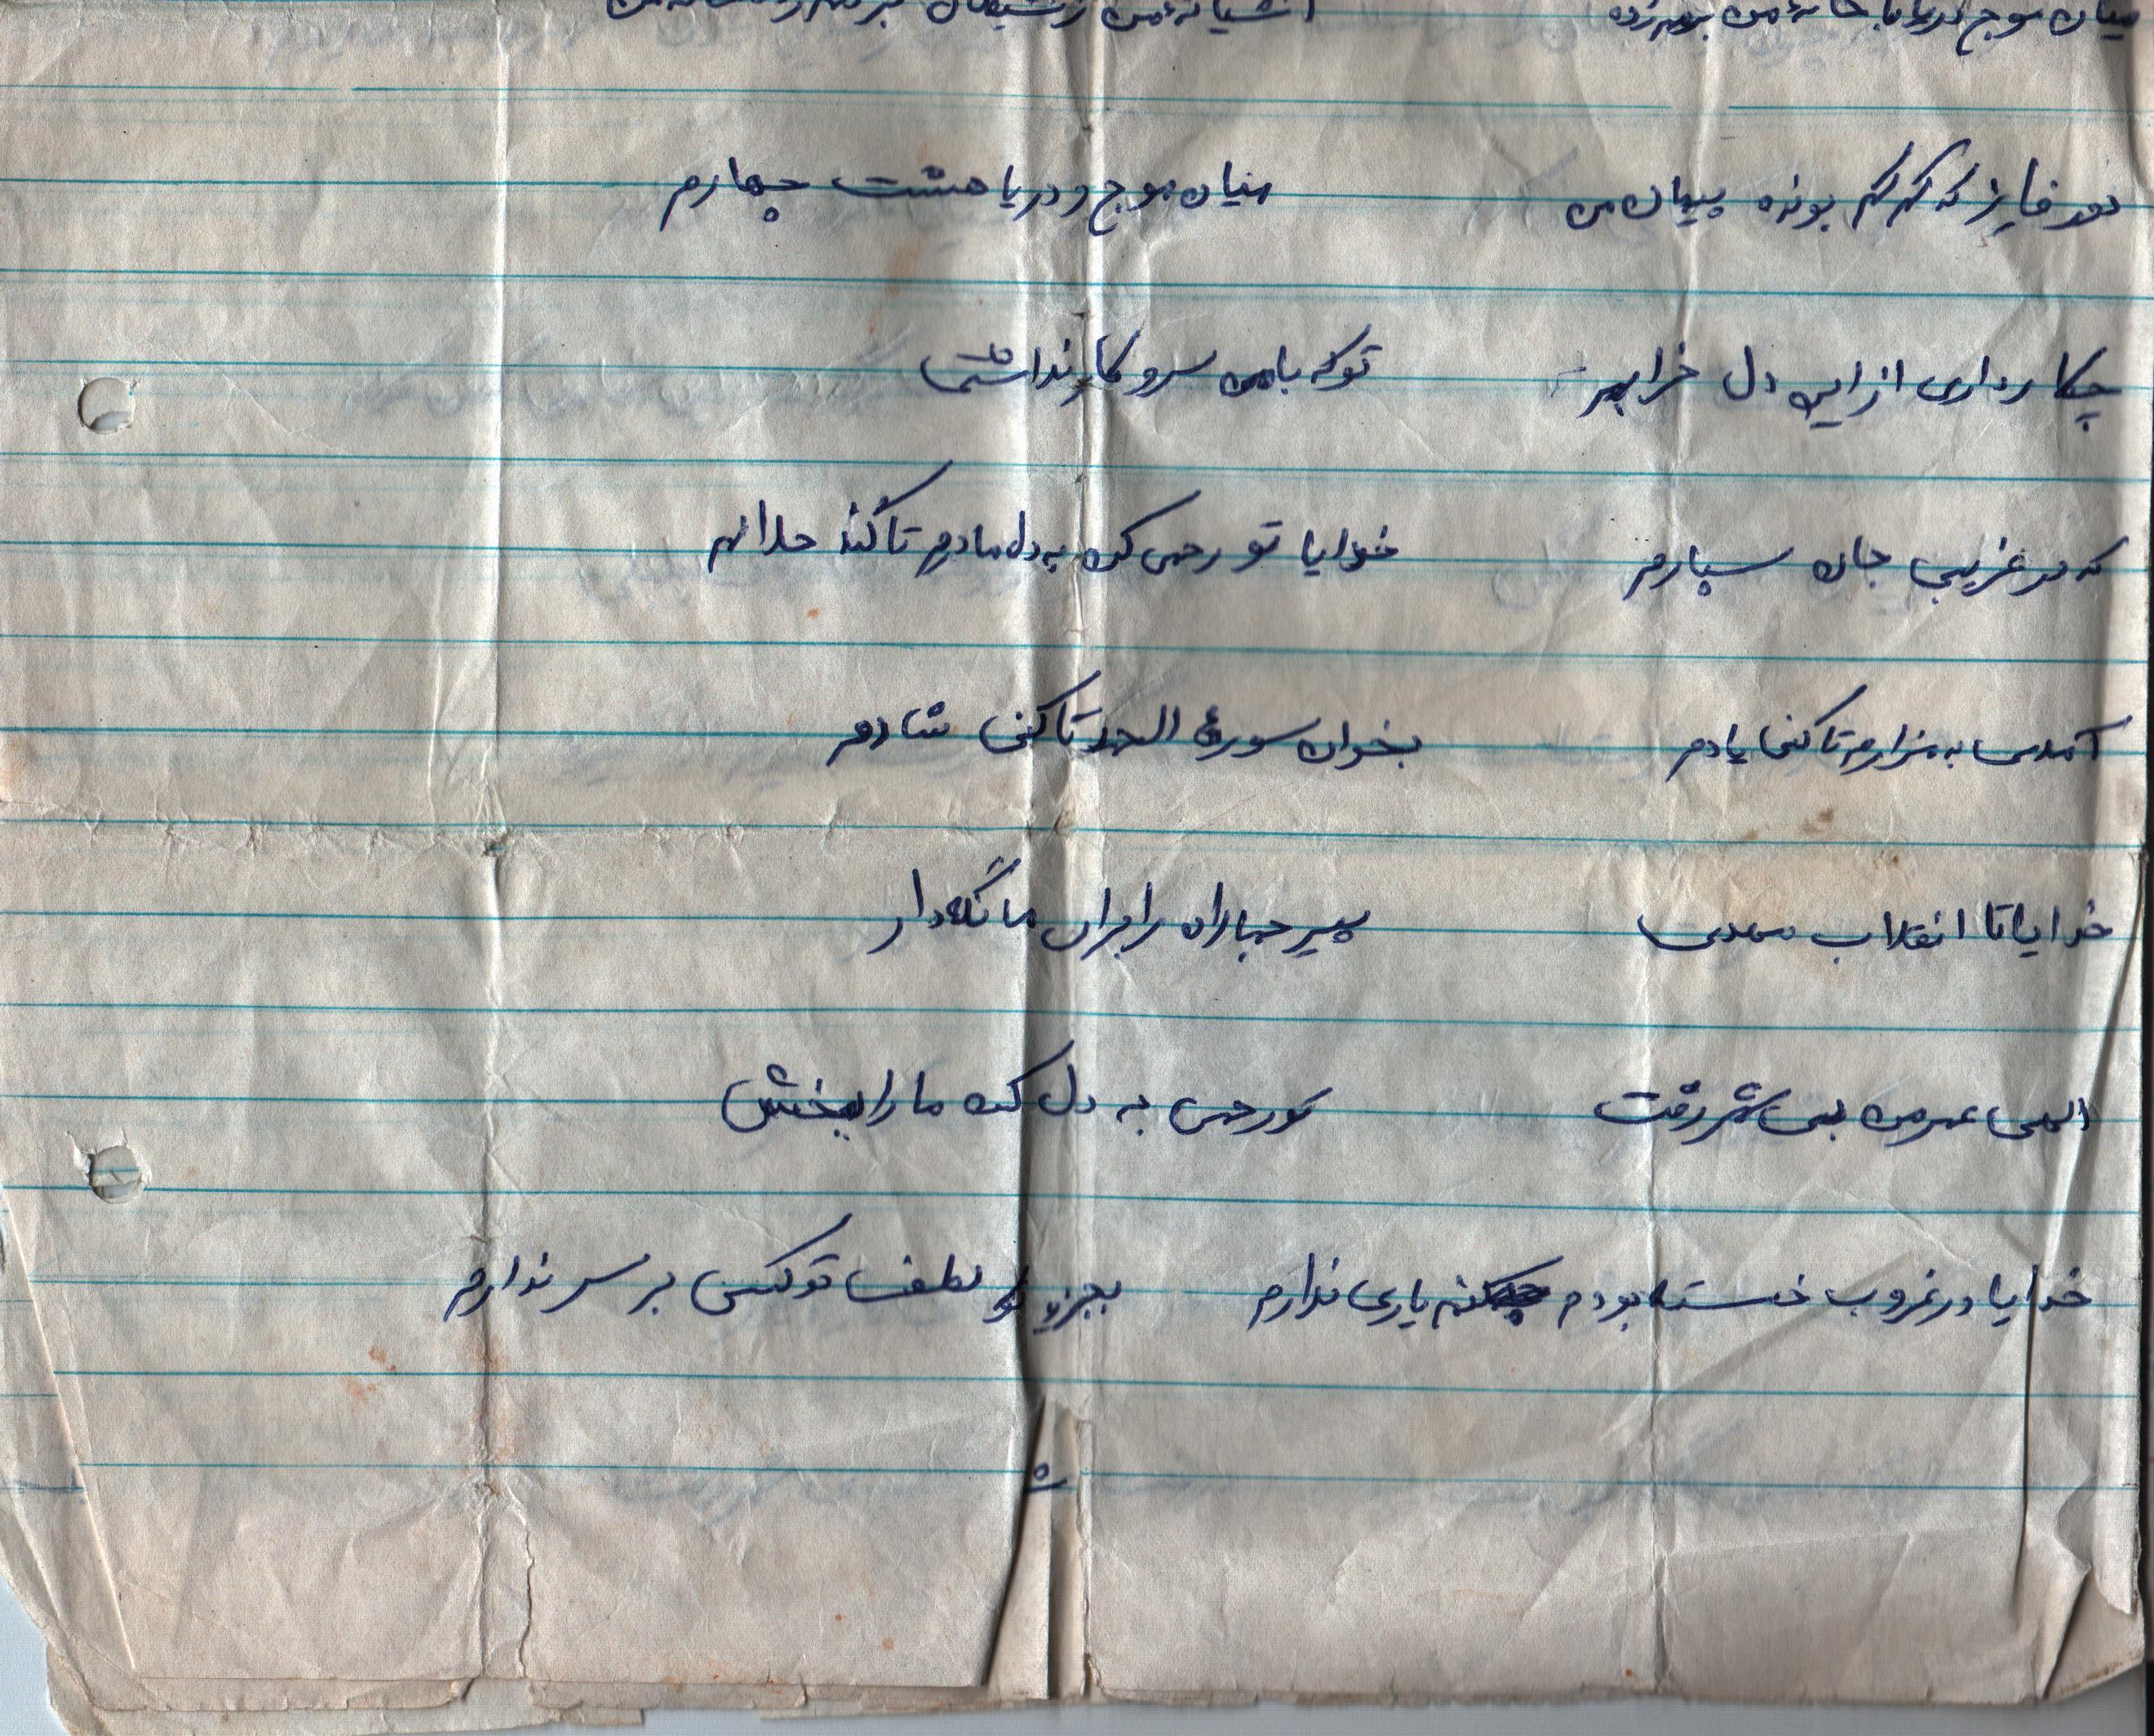 میان موج دریا با خانهٔ من بهم زده آشیانهٔ من
که کم کم بونده پیمان من میان موج و دریا هشت چهارم
چکار داری از این دل خرابم تو که با من سرو کار نداشتی
که در غریبی جان سپارم خدایا تو رحمی کن به دل مادرم تا کند حلالم
آمدی به مزارم تا کنی یادم بخوان سورهٔ الحمد تا کنی شادم
خدایا تا انقلاب مهدی پیر جماران را برای ما نگهدار
الهی عمر من بی ثمر رفت تو رحمی به دل کن ما را ببخش
خدایا در غروب خسته بودم چکنم یاری ندارم بجز لطف تو کسی بر سر ندارم